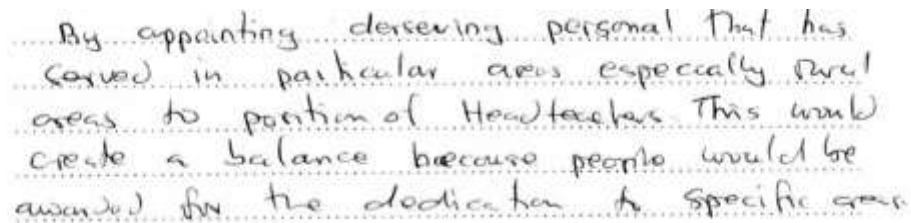 By appointing derserving personal that has
served in particular areas especially rural
areas to position of Headteachers This would
create a balance because people would be
awarded for the dedication to specific areas